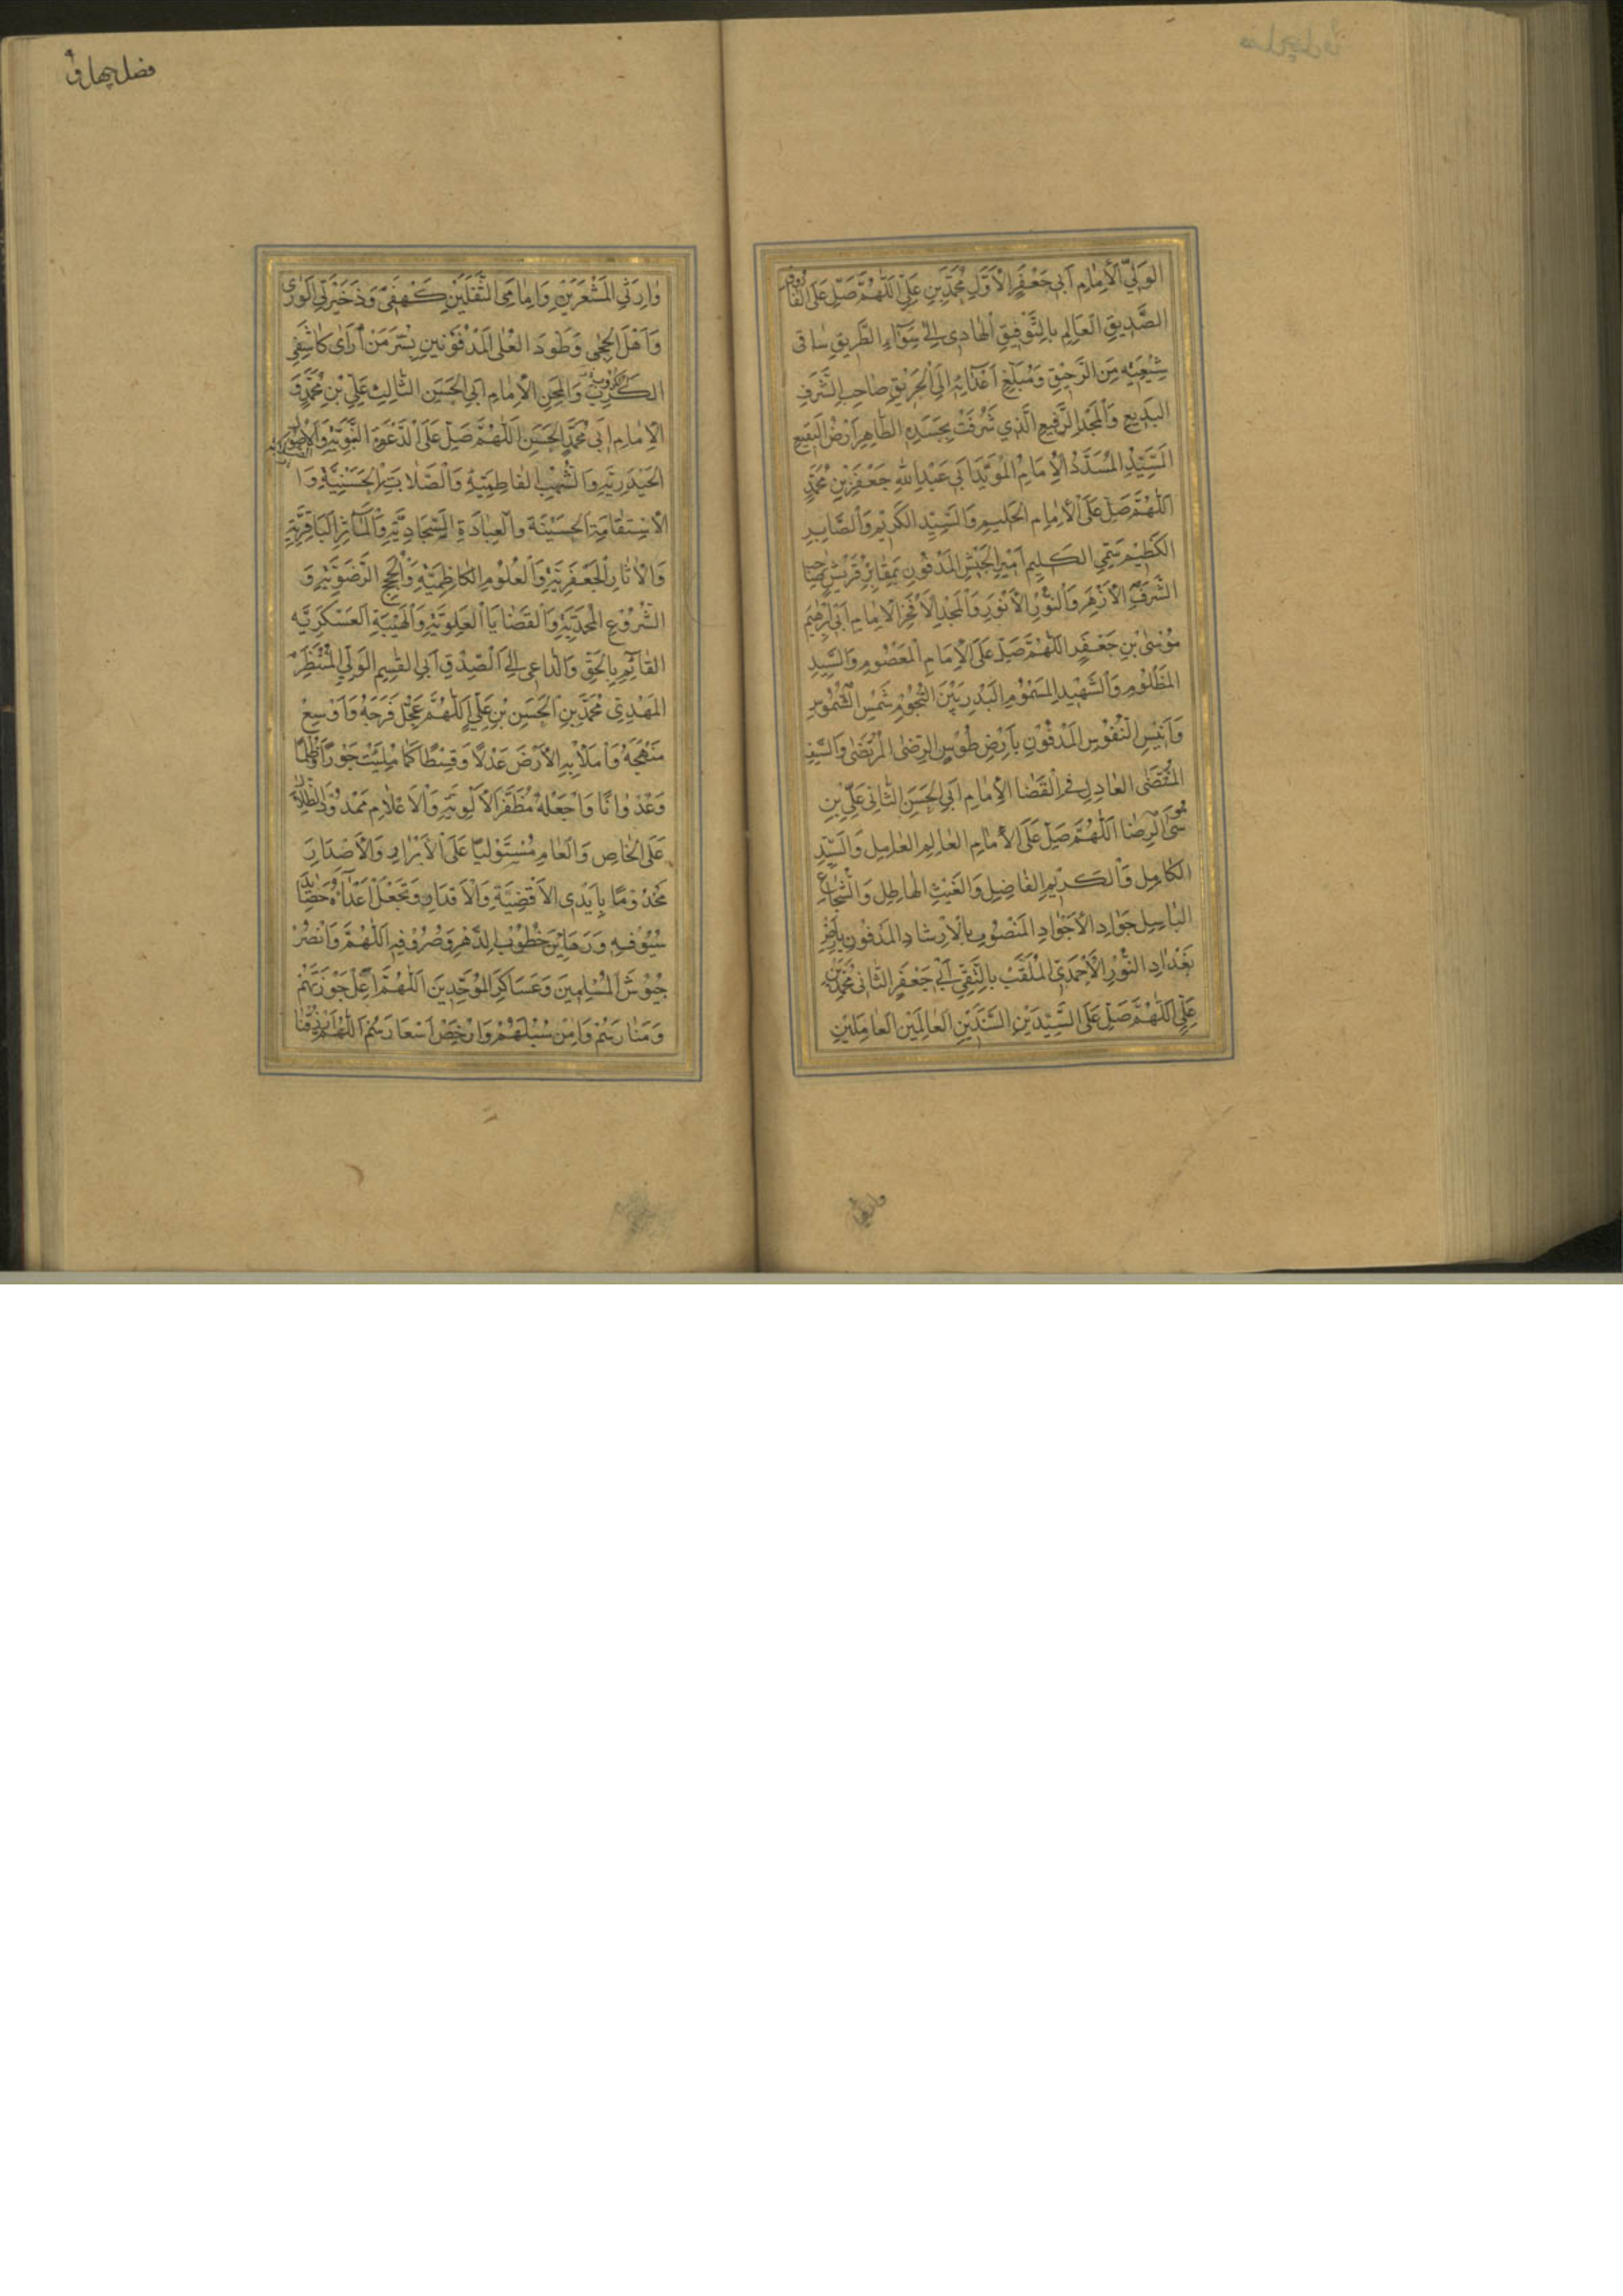 الوَلِيِّ الاِمامِ اَبي جَعْفَرٍ الاَوَّلِ مُحَمَّدِ بنِ عَلِيٍّ اَللّٰهُمَّ صَلِّ عَلَى الفاروقِ
الصِّدّيقِ العالِمِ بِالتَّوْفيقِ الهادي اِلى سَوآءِ الطَّريقِ ساقي
شيعَتِهِ مِنَ الرَّحيقِ وَمُبَلِّغِ اَعْدائِهِ اِلَى الحَريقِ صاحِبِ الشَّرَفِ
البَديعِ وَالمَجْدِ الرَّفيعِ الَّذي شُرِّفَتْ بِجَسَدِهِ الطّاهِرِ اَرْضُ البَقيعِ
السَّيِّدِ المُسَدَّدِ الاِمامِ المُؤَيَّدِ اَبي عَبْدِ اللهِ جَعْفَرِ بْنِ مُحَمَّدٍ
اَللّٰهُمَّ صَلِّ عَلَى الاِمامِ الحَليمِ وَالسَّيِّدِ الكَريمِ وَالصّابِرِ
الكَظيمِ سَمِيِّ الكَليمِ اَميرِ الجَيْشِ المَدْفونِ بِمَقابِرِ قُرَيْشٍ صاحِبِ
الشَّرَفِ الاَزْهَرِ وَالنُّورِ الاَنْوَرِ وَالمَجْدِ الاَفْخَرِ الاِمامِ اَبي اِبْرٰهيمَ
مُوسَى بْنِ جَعْفَرٍ اَللّٰهُمَّ صَلِّ عَلَى الاِمامِ المَعْصُومِ وَالسَّيِّدِ
المَظْلُومِ وَالشَّهيدِ المَسْمُومِ البَدْرِ بَيْنَ النُّجُومِ شَمْسِ الشُّمُوسِ
وَاَنيسِ النُّفُوسِ المَدْفُونِ بِاَرْضِ طُوسٍ الرِّضَى المُرْتَضى وَالسَّيْفِ
المُقْتَضى العادِلِ في القَضا الاِمامِ اَبي الحَسَنِ الثّاني عَلِيِّ بْنِ
مُوسَى الرِّضا اَللّٰهُمَّ صَلِّ عَلَى الاِمامِ العالِمِ العامِلِ وَالسَّيِّدِ
الكامِلِ وَالكَريمِ الفاضِلِ وَالغَيْثِ الهاطِلِ وَالشُّجاعِ
الباسِلِ جَوادِ الاَجْوادِ المَنْصُوبِ بِالاِرْشادِ المَدفُونِ بِاَرْضِ
بَغْدادِ النُّورِ الاَحْمَدِيِّ المُلَقَّبِ بِالتَّقِيِّ اَبي جَعْفَرٍ الثّاني مُحَمَّدِ بْنِ
عَلِيٍّ اَللّٰهُمَّ صَلِّ عَلَى السَّيِّدَيْنِ السَّنَدَيْنِ العالِمَيْنِ العامِلَيْنِ
وارثي
فضل چهارم
وارِثَيِ المَشْعَرَيْنِ وَاِمامَيِ الثَّقَلَيْنِ كَهْفَيْ وَذَخيرَتَيِ الوَرٰى
وَاَهْلَ الحِجٰى وَطَودَا العُلٰى المَدْفُونَيْنِ بِسُرَّ مَنْ رَاٰى كاشِفَيِ
الكَرْبِ وَالمِحَنِ الاِمامِ اَبي الحَسَنِ الثّالِثِ عَلِيِّ بْنِ مُحَمَّدٍ وَ
الاِمامِ اَبي مُحَمَّدٍ الحَسَنِ اَللّٰهُمَّ صَلِّ عَلَى الدَّعْوَةِ النَّبَوِيَّةِ وَالصَّوْلَةِ
الحَيْدَرِيَّةِ وَالشُّهُبِ الفاطِمِيَّةِ وَالصَّلابَةِ الحَسَنِيَّةِ وَا
الاِسْتِقامَةِ الحُسَيْنَة وَالعِبادَةِ السَّجّادِيَّةِ وَالمَآثِرِ الباقِرِيَّةِ
وَالاٰثارِ الجَعْفَرِيَّةِ وَالعُلُومِ الكاظِمِيَّةِ وَالحُجَجِ الرَّضَوِيَّةِ وَ
الشُّرُوعِ المُحَمَّدِيَّةِ وَالقَضايا العَلَوِيَّةِ وَالهَيْبَةِ العَسْكَرِيَّه
القٰائِمِ بِالحَقِّ وَالدّاعي اِلَى الصِّدْقِ اَبي القٰسِمِ الوَلِيِّ المُنْتَظَرِ
المَهْدِيِّ مُحَمَّدِ بنِ الحَسَنِ بْنِ عَلِيٍّ اَللّٰهُمَّ عَجِّلْ فَرَجَهُ وَاَوْسِعْ
مَنْهَجَهُ وَاَمْلَأْ بِهِ الاَرْضَ عَدْلاً وَقِسْطاً كَما مُلِئَتْ جَوْراً وَظُلْماً
وَعُدْواناً وَاجْعَلْهُ مُظَفَّرَ الاَلْوِيَةِ وَالاَعْلامِ مَمْدُودَ الظِّلالِ
عَلَى الخاصِ وَالعامِ مُسْتَوْلِياً عَلَى الاَبْرادِ وَالاَصْدارِ
مَخْدُوماً بِاَيْدِي الاَقْضِيَةِ وَالاَقْدارِ وَتَجْعَلَ اَعْدآءَهُ حَصآئِدَ
سُيُوفِهِ وَرَهايِنَ خُطُوبِ الدَّهْرِ وَصُرُوفِهِ اَللّٰهُمَّ وَانْصُرْ
جُيُوشَ المُسْلِمينَ وَعَساكِرَ المُوَحِّدينَ اَللّٰهُمَّ اَعْلِ حَوْزَتَهُمْ
وَمَنارَهُمْ وَاٰمِنْ سُبُلَهُمْ وَارْخِصْ اَسْعارَهُمْ اَللّٰهُمَّ ارْزُقْنا